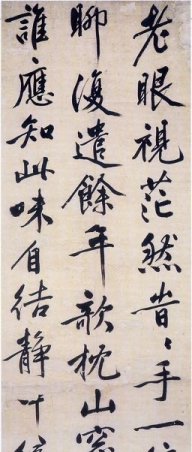 老眼視茫然昔〻手一
聊復遣餘年欹枕山窓
誰應知此味自結靜